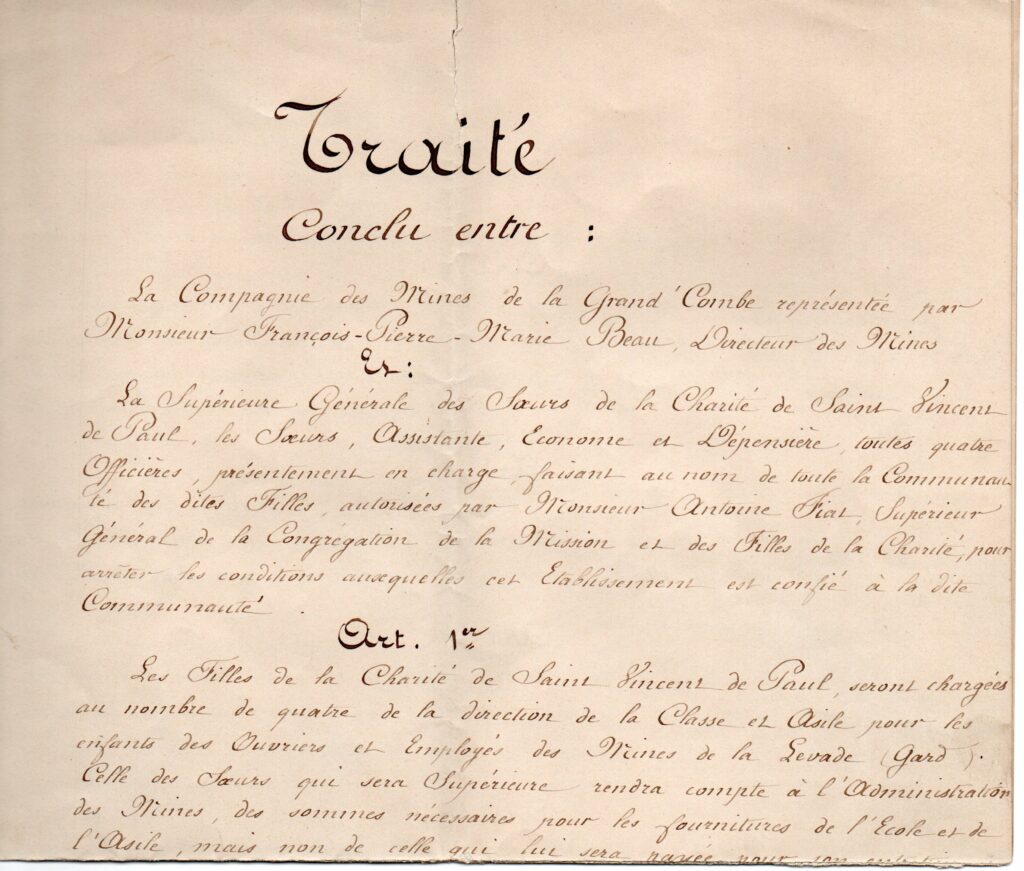 Traité
Conclu entre :
La Compagnie des Mines de la Grand'Combe représentée par
Monsieur François-Pierre-Marie Beau, Directeur des Mines
Et :
La Supérieure Générale des Sœurs de la Charité de Saint Vincent
de Paul, les Sœurs, Assistante, Econome et Dépensière, toutes quatre
Officières, présentement en charge, faisant au nom de toute la Communau
té des dites Filles, autorisées par Monsieur Antoine Fiat, Supérieur
Général de la Congrégation de la Mission et des Filles de la Charité, pour
arrêter les conditions auxquelles cet Etablissement est confié à la dite
Communauté.
Art. 1er
Les Filles de la Charité de Saint Vincent de Paul, seront chargées
au nombre de quatre de la direction de la Classe et Asile pour les
enfants des Ouvriers et Employés des Mines de la Levade (Gard).
Celle des Sœurs qui sera Supérieure rendra compte à l'Administration
des Mines, des sommes nécessaires pour les fournitures de l'Ecole et de
l'Asile, mais non de celle qui lui sera payée pour son